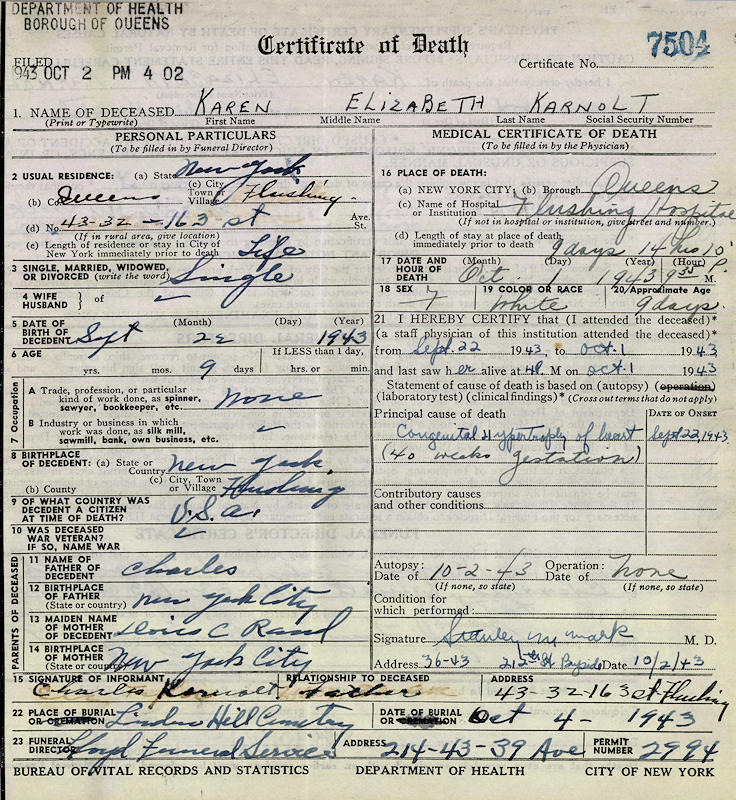 DEPARTMENT OF HEALTH
BOROUGH OF QUEENS
Certificate of Death
7504
FILED
1943 OCT 2 PM 4 02
Certificate No.
1. NAME OF DECEASED KAREN ELIZABETH KARNOLT
(Print or Typewrite) First Name Middle Name Last Name Social Security Number
PERSONAL PARTICULARS
(To be filled in by Funeral Director)
2 USUAL RESIDENCE: (a) State New York
(b) Co. Queens (c) City Town or Village Flushing
(d) No. 43-32 - 163 st Ave. St.
(If in rural area, give location)
(e) Length of residence or stay in City of New York immediately prior to death Life
3 SINGLE, MARRIED, WIDOWED, OR DIVORCED (write the word) Single
4 WIFE HUSBAND } of
5 DATE OF BIRTH OF DECEDENT (Month) (Day) (Year)
Sept 22 1943
6 AGE If LESS than 1 day,
yrs. mos. 9 days hrs. or min.
7 Occupation
A Trade, profession, or particular kind of work done, as spinner, sawyer, bookkeeper, etc. None
B Industry or business in which work was done, as silk mill, sawmill, bank, own business, etc.
8 BIRTHPLACE OF DECEDENT: (a) State or Country New York
(b) County (c) City, Town or Village Flushing
9 OF WHAT COUNTRY WAS DECEDENT A CITIZEN AT TIME OF DEATH? U.S.A.
10 WAS DECEASED WAR VETERAN? IF SO, NAME WAR
PARENTS OF DECEASED
11 NAME OF FATHER OF DECEDENT Charles
12 BIRTHPLACE OF FATHER (State or country) New York City
13 MAIDEN NAME OF MOTHER OF DECEDENT C Rand
14 BIRTHPLACE OF MOTHER (State or country) New York City
MEDICAL CERTIFICATE OF DEATH
(To be filled in by the Physician)
16 PLACE OF DEATH:
(a) NEW YORK CITY: (b) Borough Queens
(c) Name of Hospital or Institution Flushing Hospital
(If not in hospital or institution, give street and number.)
(d) Length of stay at place of death immediately prior to death 9 days 14 hrs 10'
17 DATE AND HOUR OF DEATH (Month) (Day) (Year) (Hour)
Oct. 1 1943 9 35 P. M.
18 SEX F 19 COLOR OR RACE White 20 Approximate Age 9 days.
21 I HEREBY CERTIFY that (I attended the deceased)*
(a staff physician of this institution attended the deceased)*
from Sept. 22 1943, to Oct. 1 1943
and last saw her alive at M on Oct. 1 1943
Statement of cause of death is based on (autopsy) (operation)
(laboratory test) (clinical findings)* (Cross out terms that do not apply)
Principal cause of death DATE OF ONSET
Congenital Hypertrophy of heart Sept 22, 1943
(40 weeks gestation)
Contributory causes and other conditions
Autopsy: Date of 10-2-43 Operation: Date of None
(If none, so state) (If none, so state)
Condition for which performed:
Signature Stanley M Mark M. D.
Address 36-43 212th St Bayside Date 10/2/43
15 SIGNATURE OF INFORMANT RELATIONSHIP TO DECEASED ADDRESS
Charles Karnolt Father 43-32-163 st Flushing
22 PLACE OF BURIAL OR CREMATION Linden Hill Cemetry DATE OF BURIAL OR CREMATION Oct 4 - 1943
23 FUNERAL DIRECTOR Lloyd Funeral Service ADDRESS 214-43-39 Ave PERMIT NUMBER 2994
BUREAU OF VITAL RECORDS AND STATISTICS DEPARTMENT OF HEALTH CITY OF NEW YORK